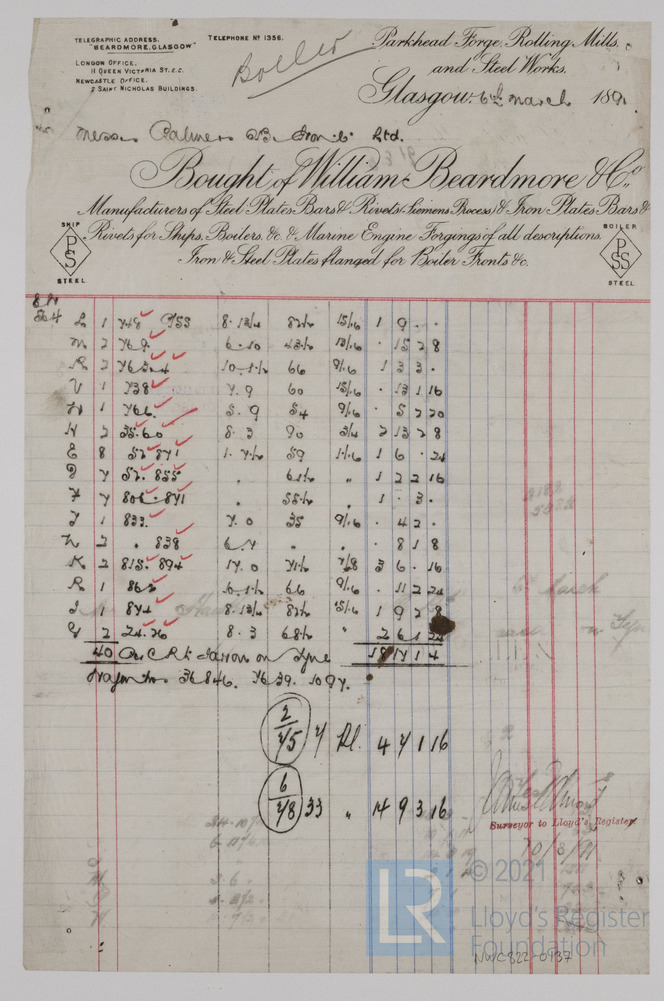 TELEGRAPHIC ADDRESS.
"BEARDMORE, GLASGOW"
TELEPHONE Nº 1356.
LONDON OFFICE,
11 QUEEN VICTORIA ST. E.C.
NEWCASTLE OFFICE,
2 SAINT NICHOLAS BUILDINGS.
Boiler
Parkhead Forge, Rolling Mills,
and Steel Works.
Glasgow, 6th March 1891
Messrs Palmers SB. & Iron Co Ltd.
Bought of William Beardmore & Co.
Manufacturers of Steel Plates Bars & Rivets (Siemens Process) & Iron Plates Bars &
Rivets for Ships, Boilers, &c. & Marine Engine Forgings of all descriptions.
Iron & Steel Plates flanged for Boiler Fronts &c.
SHIP
PSS
STEEL
BOILER
PSS
STEEL
564
L 1 748 PSS 8. 13/4 82½ 15/16 1 9 . .
M 2 769 6. 10 43½ 13/16 . 15 2 8
R 2 763.4 10. 1½ 66 9/16 1 3 3 .
V 1 738 7. 9 60 15/16 . 13 1 16
H 1 766 5. 9 54 9/16 . 5 2 20
N 2 35.60 8. 3 90 3/4 2 13 2 8
E 8 1. 7½ 59 11/16 1 6 . 24
7 57. 855 . 61½ " 1 2 2 16
F 7 806. 841 . 55½ . 1 . 3 .
J 1 833. 7. 0 35 9/16 . 4 2 .
2 . 838 6. 7 . . . 8 1 8
K 2 815. 894 17. 0 71½ 7/8 3 6 . 16
R 1 863 10. 1½ 66 9/16 . 11 2 24
1 874 8. 13/4 82½ 15/16 1 9 2 8
2 24. 26 8. 3 68½ " 2 6 1 24
40 Per C Rl Jarrow on Tyne 18 17 1 4
Wagon Nos 36846. 7639. 1097.
2/75 7 Pl. 4 7 1 16
6/78 33 " 14 9 3 16
Surveyor to Lloyd's Register
10/3/91
© 2021
LR
Lloyd's Register
Foundation
NWC822-0437